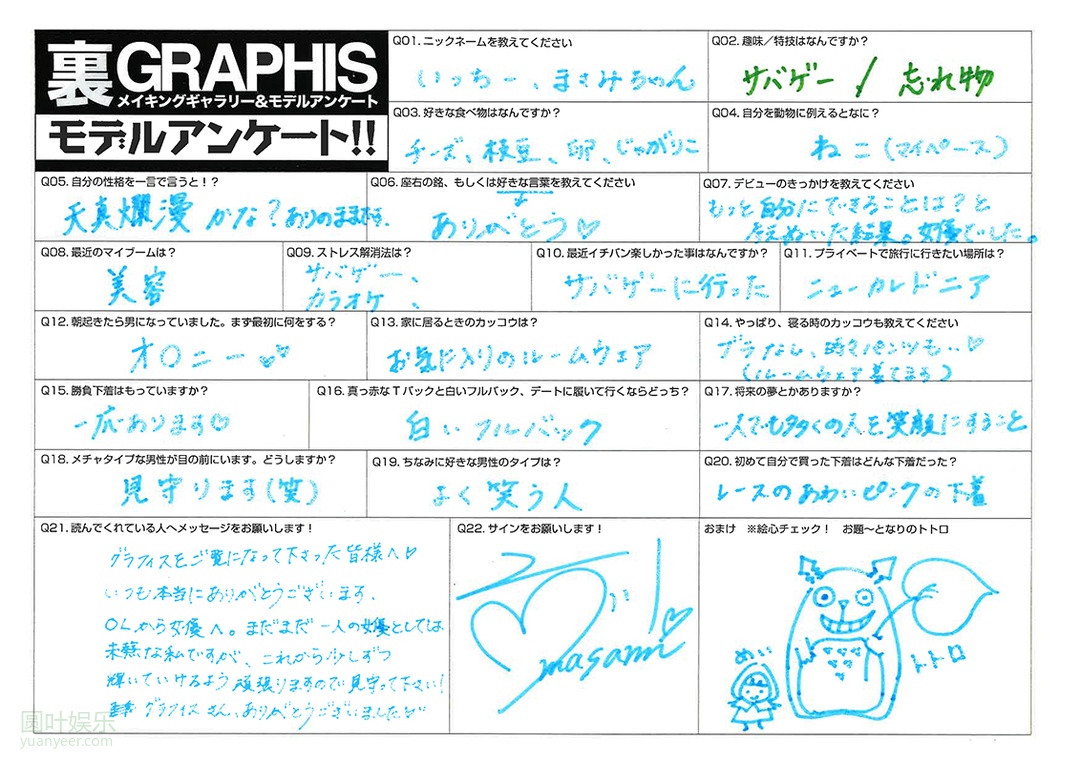 裏GRAPHIS
メイキングギャラリー&モデルアンケート
モデルアンケート!!
Q01. ニックネームを教えてください
いっちー、まさみちゃん
Q02. 趣味／特技はなんですか？
サバゲー / 忘れ物
Q03. 好きな食べ物はなんですか？
チーズ、枝豆、卵、じゃがりこ
Q04. 自分を動物に例えるとなに？
ねこ(マイペース)
Q05. 自分の性格を一言で言うと！？
天真爛漫 かな？ありのままです。
Q06. 座右の銘、もしくは好きな言葉を教えてください
ありがとう♡
Q07. デビューのきっかけを教えてください
もっと自分にできることは？と
考えぬいた結果。女優でした。
Q08. 最近のマイブームは？
美容
Q09. ストレス解消法は？
サバゲー、
カラオケ、
Q10. 最近イチバン楽しかった事はなんですか？
サバゲーに行った
Q11. プライベートで旅行に行きたい場所は？
ニューカレドニア
Q12. 朝起きたら男になっていました。まず最初に何をする？
オ〇ニー♡♡
Q13. 家に居るときのカッコウは？
お気に入りのルームウェア
Q14. やっぱり、寝る時のカッコウも教えてください
ブラなし、時々パンツも…♡
(ルームウェア着てます)
Q15. 勝負下着はもっていますか？
一応あります♡
Q16. 真っ赤なTバックと白いフルバック、デートに履いて行くならどっち？
白いフルバック
Q17. 将来の夢とかありますか？
一人でも多くの人を笑顔にすること
Q18. メチャタイプな男性が目の前にいます。どうしますか？
見守ります(笑)
Q19. ちなみに好きな男性のタイプは？
よく笑う人
Q20. 初めて自分で買った下着はどんな下着だった？
レースのあわいピンクの下着
Q21. 読んでくれている人へメッセージをお願いします！
グラフィスをご覧になって下さった皆様へ♡
いつも本当にありがとうございます.
OLから女優へ。まだまだ一人の女優としては
未熟な私ですが、これから少しずつ
輝いていけるよう頑張りますので見守って下さい！
グラフィスさん、ありがとうございました♡
Q22. サインをお願いします！
masami
おまけ　※絵心チェック！　お題～となりのトトロ
めい
トトロ
圆叶娱乐
yuanyeer.com